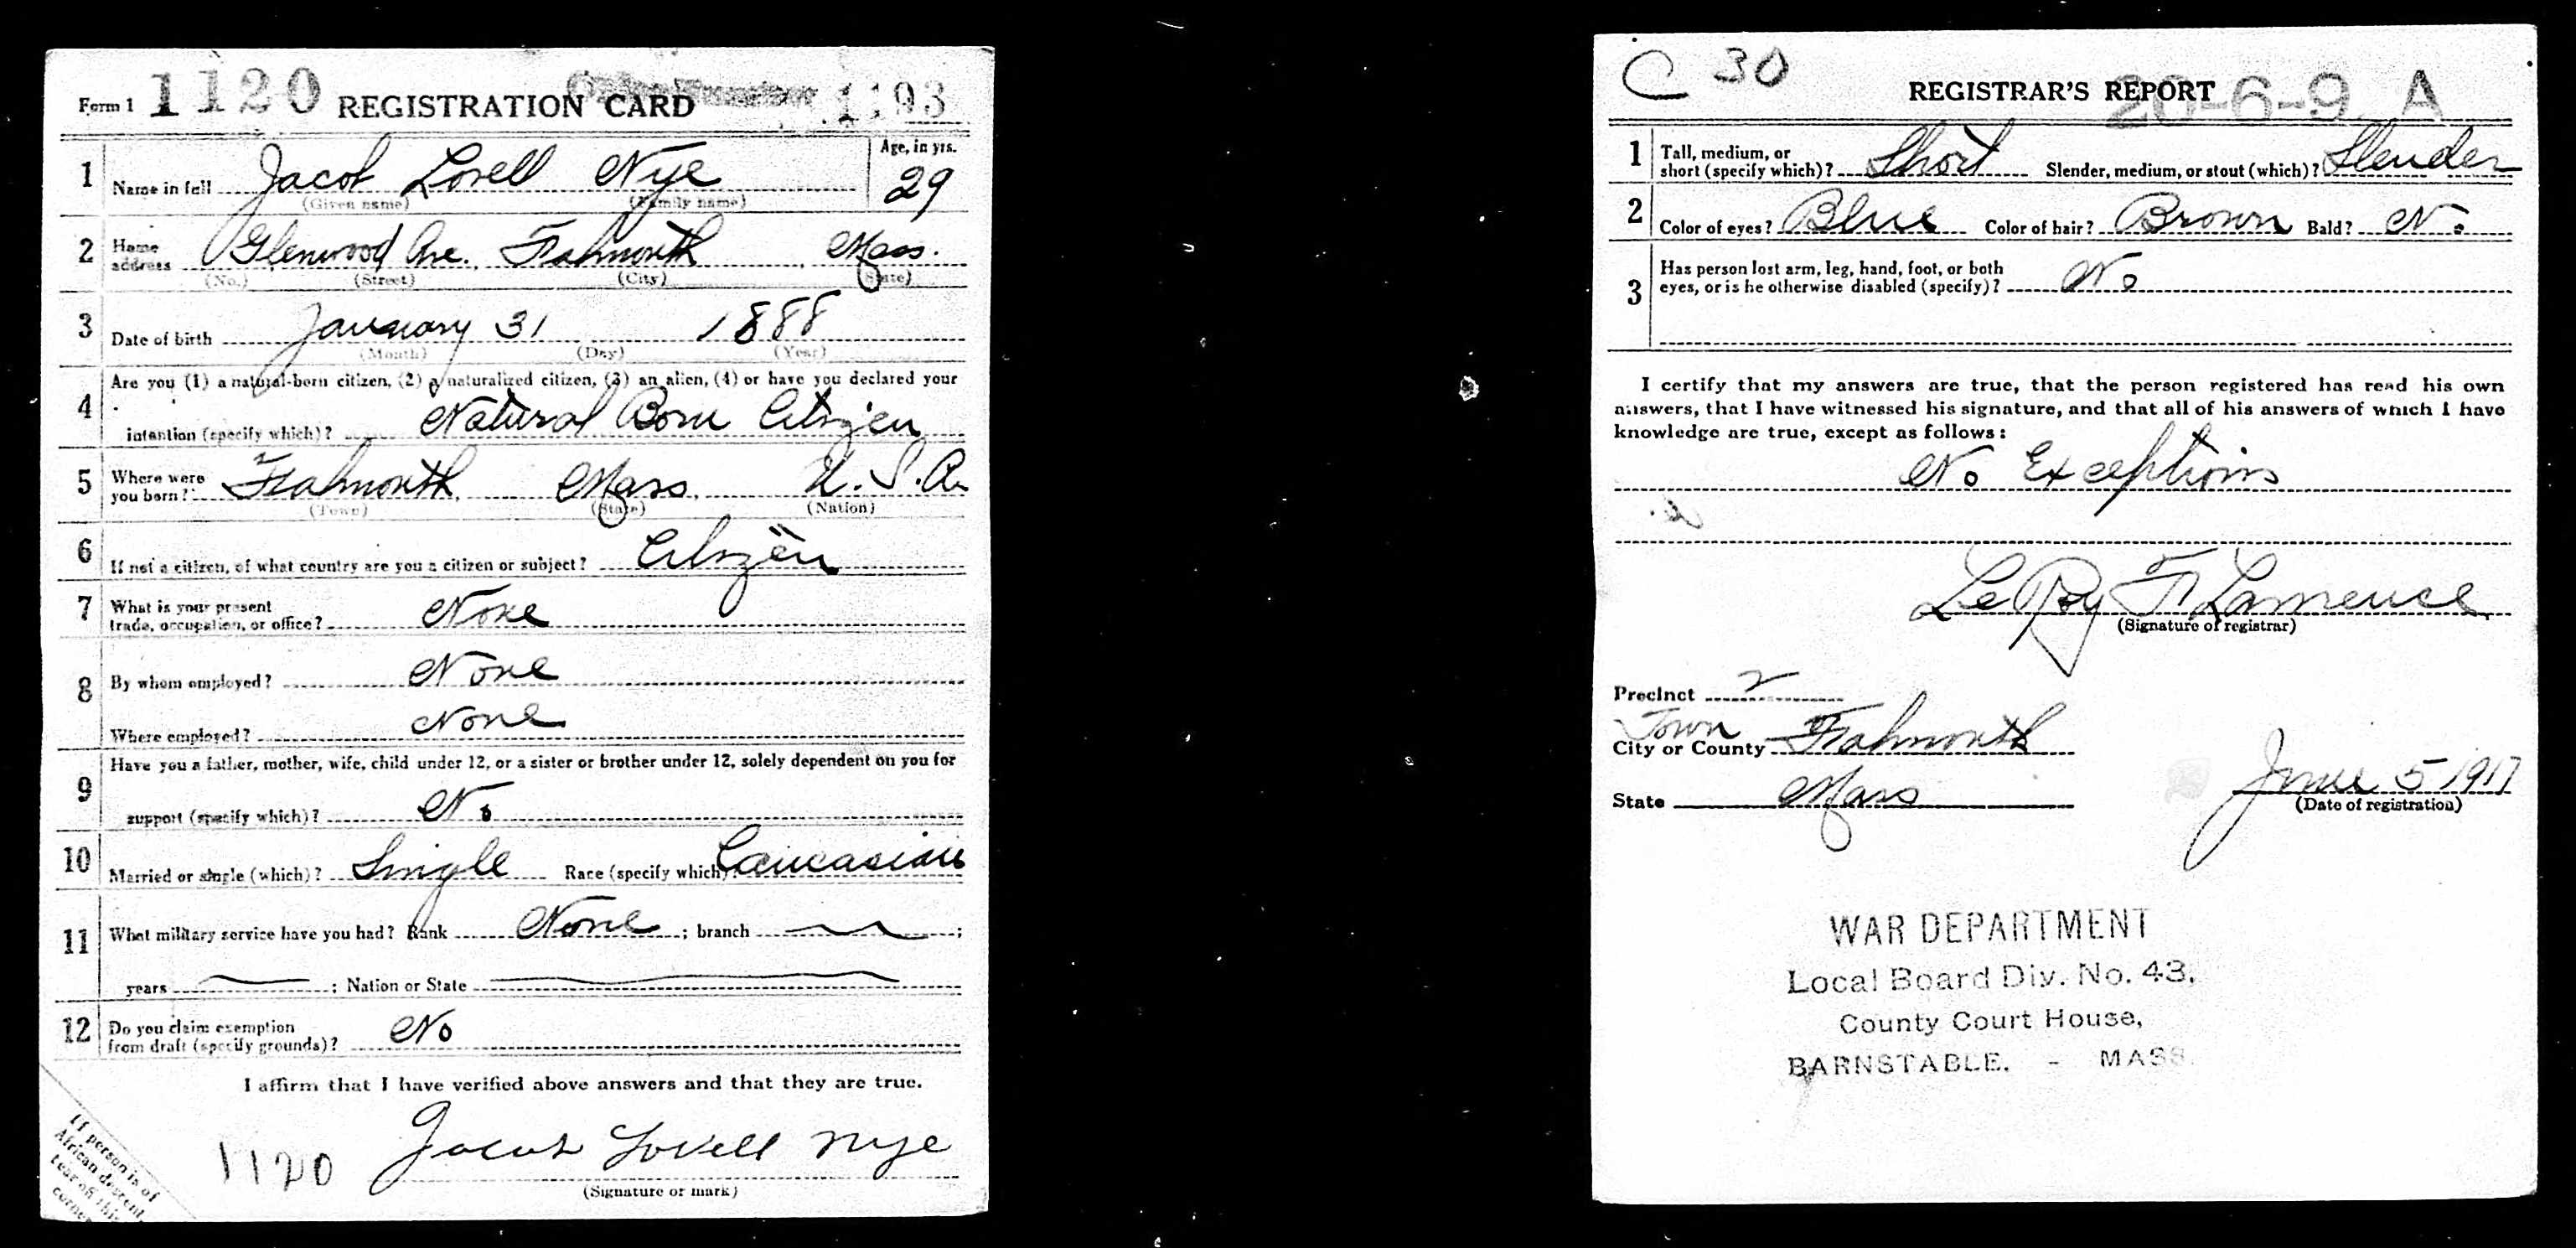 Form 1 1120 REGISTRATION CARD 1193
1 Name in full Jacob Lovell Nye Age, in yrs. 29
(Given name) (Family name)
2 Home address Glenwood Ave. Falmouth Mass.
(No.) (Street) (City) (State)
3 Date of birth January 31 1888
(Month) (Day) (Year)
4 Are you (1) a natural-born citizen, (2) a naturalized citizen, (3) an alien, (4) or have you declared your
intention (specify which)? Natural Born Citizen
5 Where were you born? Falmouth, Mass. U.S.A.
(Town) (State) (Nation)
6 If not a citizen, of what country are you a citizen or subject? Citizen
7 What is your present
trade, occupation, or office? None
8 By whom employed? None
Where employed? None
9 Have you a father, mother, wife, child under 12, or a sister or brother under 12, solely dependent on you for
support (specify which)? No
10 Married or single (which)? Single Race (specify which)? Caucasian
11 What military service have you had? Rank None ; branch ;
years ; Nation or State
12 Do you claim exemption
from draft (specify grounds)? No
I affirm that I have verified above answers and that they are true.
1120 Jacob Lovell Nye
(Signature or mark)
If person is of
African descent,
tear off this
corner
C 30
REGISTRAR'S REPORT 20-6-9 A
1 Tall, medium, or
short (specify which)? Short Slender, medium, or stout (which)? Slender
2 Color of eyes? Blue Color of hair? Brown Bald? No
3 Has person lost arm, leg, hand, foot, or both
eyes, or is he otherwise disabled (specify)? No
I certify that my answers are true, that the person registered has read his own
answers, that I have witnessed his signature, and that all of his answers of which I have
knowledge are true, except as follows:
No Exceptions
LeRoy F Lawrence
(Signature of registrar)
Precinct 2
Town
City or County Falmouth
State Mass June 5 1917
(Date of registration)
WAR DEPARTMENT
Local Board Div. No. 43,
County Court House,
BARNSTABLE. - MASS.